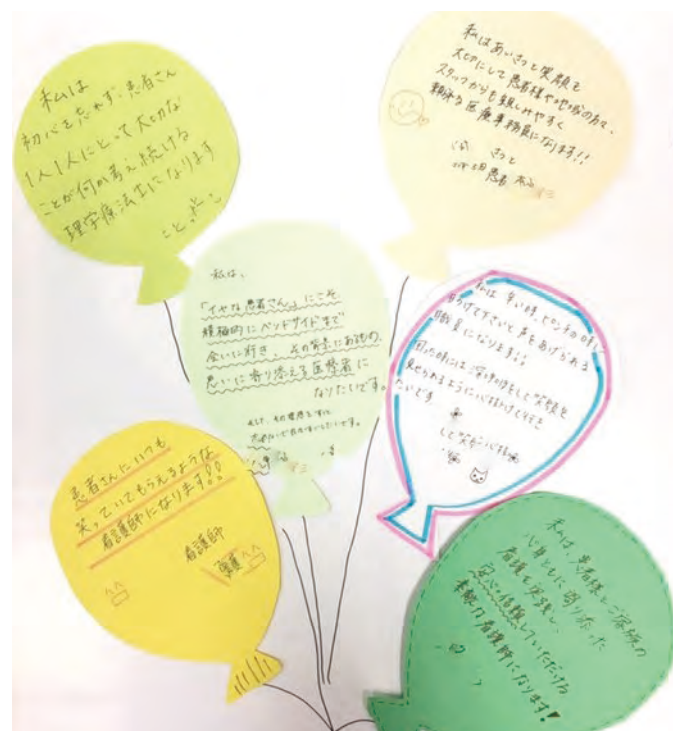 私は
初心を忘れず、患者さん
1人1人にとって大切な
ことが何か考え続ける
理学療法士になります
私はあいさつと笑顔を
大切にして患者様や地域の方々、
スタッフからも親しみやすく
医療事務員になります!!
私は、
「イヤな患者さん」にこそ
積極的にベッドサイドまで
会いに行き、その背景にあるもの、
思いに寄り添える医療者に
なりたいです。
私は 辛い時、ピンチの時に
助けて下さいと声をあげられる
職員になります!!
困った時には深呼吸をして笑顔を
見せられるように心掛けて行き
たいです
患者さんにいつも
笑っていてもらえるような
看護師になります!!
看護師
私は、患者様とご家族の
心身ともに寄り添った
看護を実践し、
安心・信頼していただける
素敵な看護師になります!